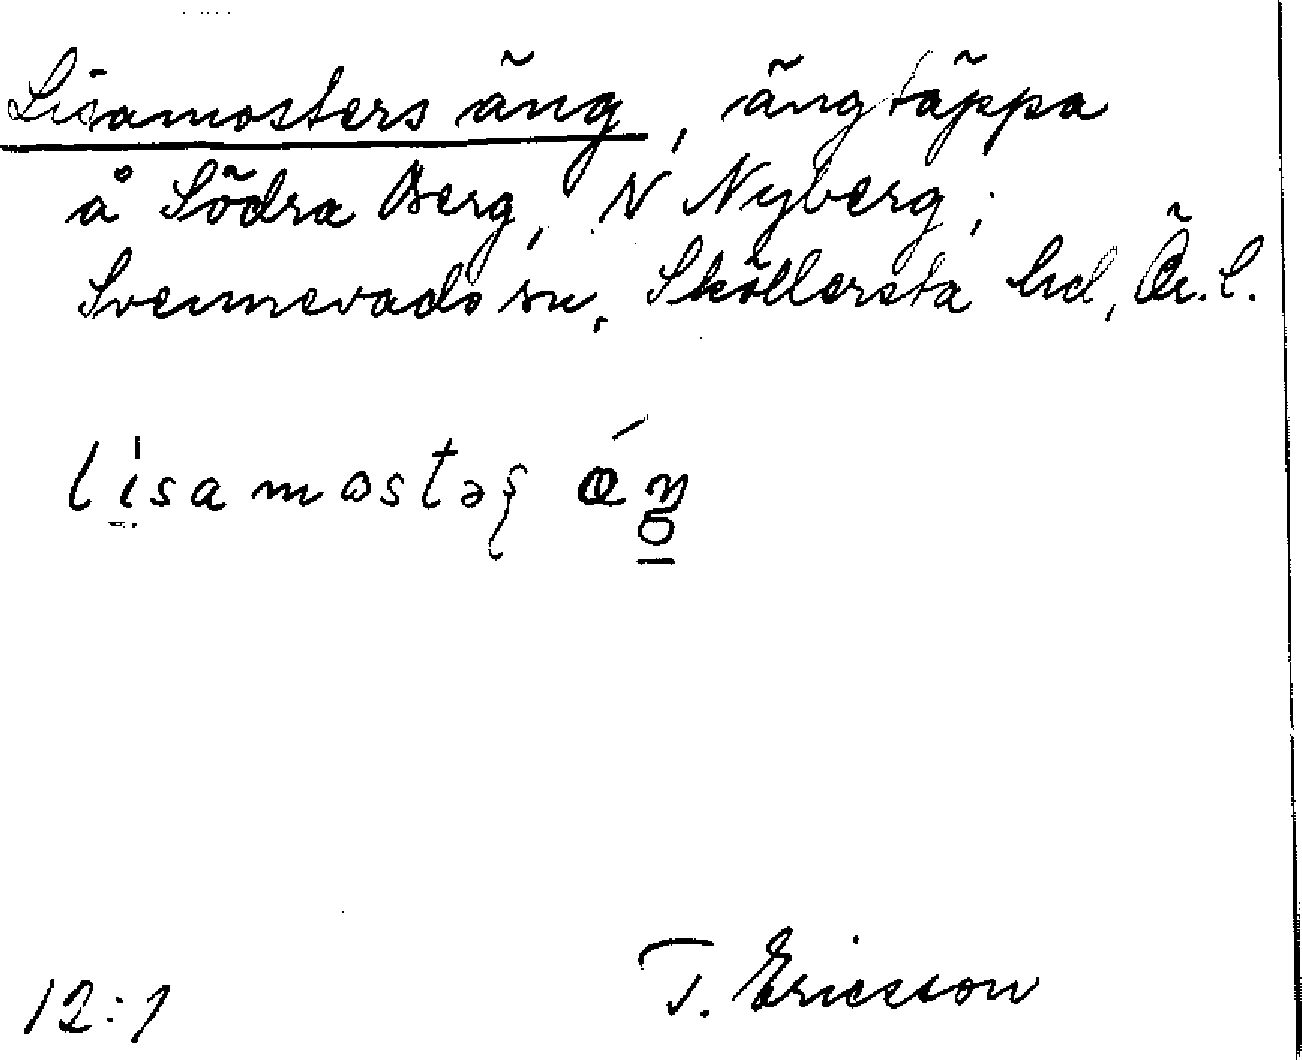 Lisamosters äng, ängtäppa
å Södra Berg, N Nyberg;
Svennevads sn, Sköllersta hd, Ör. l.
lisamostəʂ ǽŋ
12:1
T. Ericsson